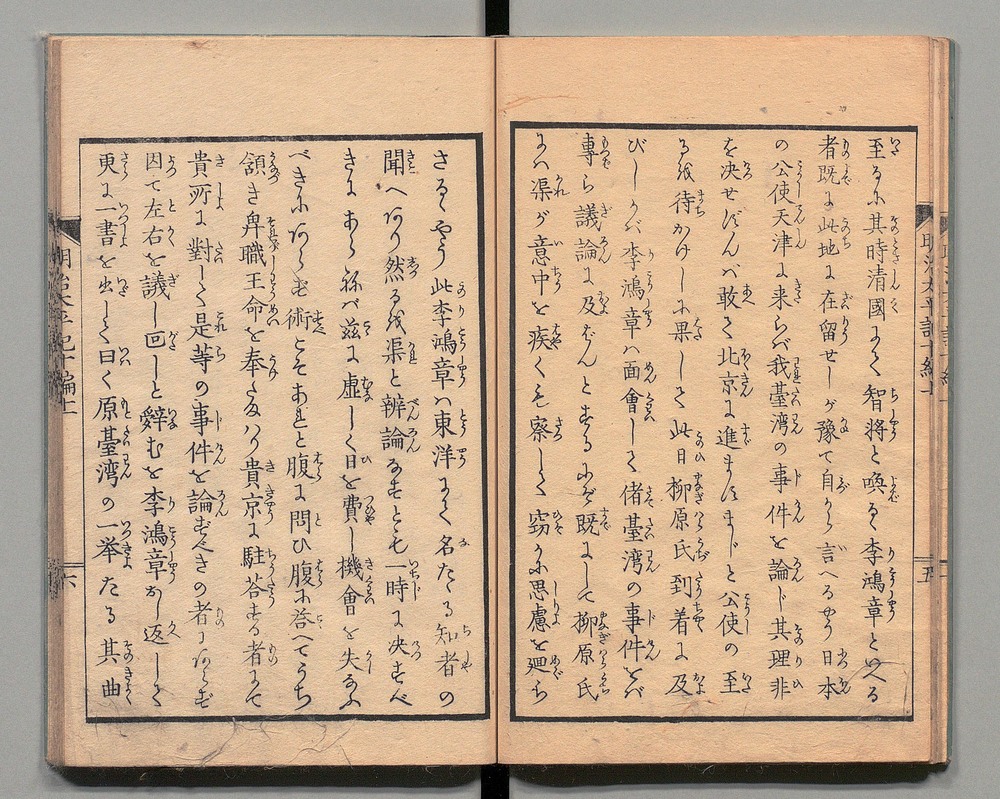 至るに其時清國にて智将と喚るゝ李鴻章といへる
者既に此地に在留せしが豫て自から言へるやう日本
の公使天津に来らバ我臺湾の事件を論じ其理非
を決せずんバ敢て北京に進ませまじと公使の至
るを待かけしに果して此日柳原氏到着に及
びしかバ李鴻章ハ面會して偖臺湾の事件をバ
専ら議論に及ばんとするにぞ既にして柳原氏
にハ渠が意中を疾くも察して窃かに思慮を廻ら
さるゝやう此李鴻章ハ東洋にて名たゝる知者の
聞へあり然るを渠と辨論なすとも一時に決すべ
きにあらねバ茲に虚しく日を費し機會を失ふ
べきにあらず術こそあれと腹に問ひ腹に答へてうち
頷き弁職王命を奉たるハ貴京に駐荅する者にて
貴所に對して是等の事件を論ずべきの者にあらず
因て左右を議し回しと辞むを李鴻章おし返して
更に一書を出して曰く原臺湾の一挙たる其曲
明治太平記十編上
五
六